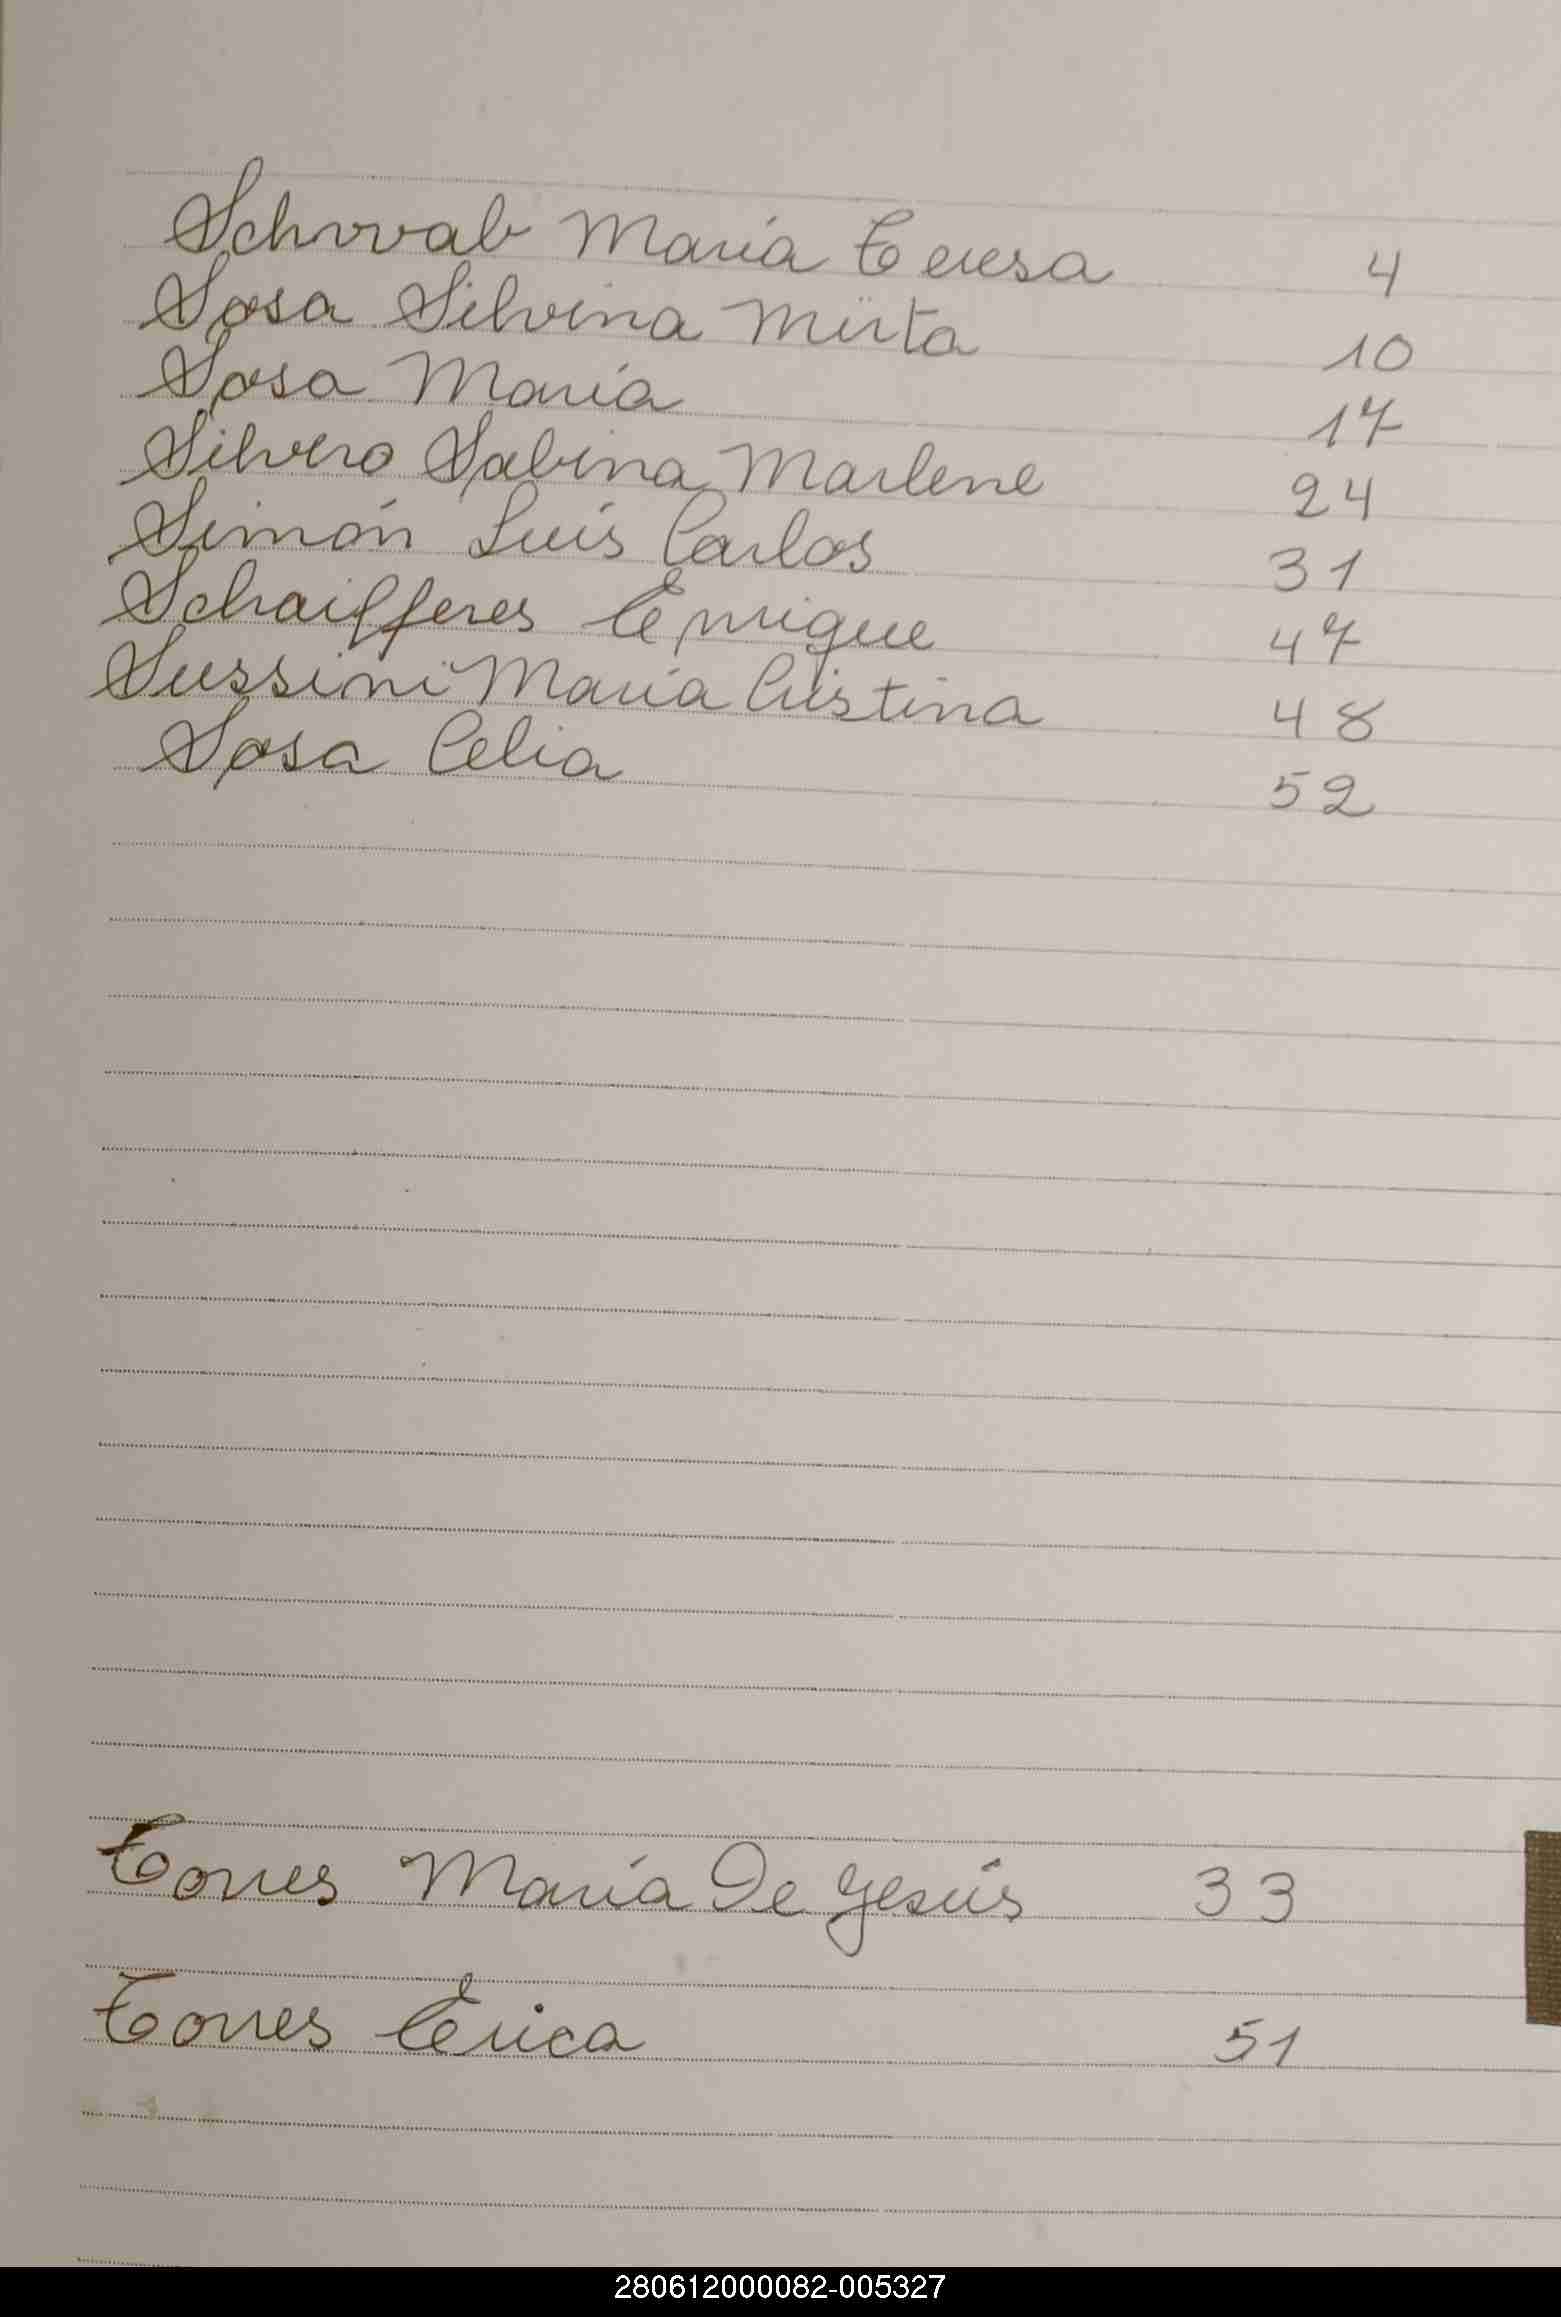 Schwab María Teresa 4
Sosa Silvina Mirta 10
Sosa María 17
Silvero Sabina Marlene 24
Simón Luis Carlos 31
Schaifferes Enrique 47
Sussini María Cristina 48
Sosa Celia 52
Torres María De Jesús 33
Torres Erica 51
280612000082-005327